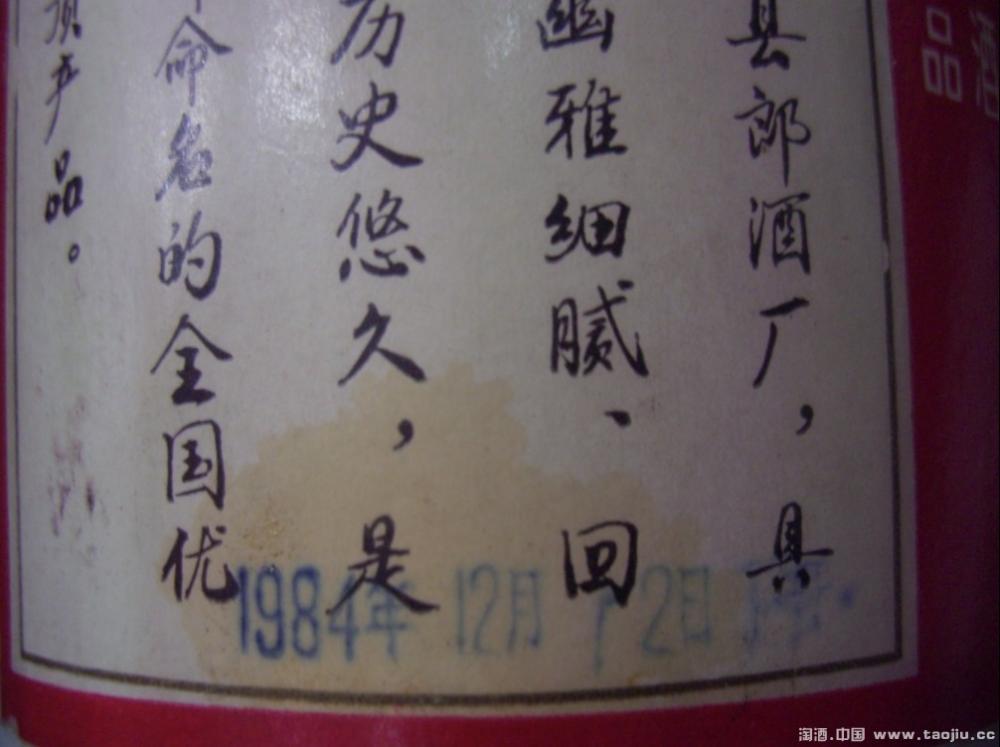 县郎酒厂，具
幽雅细腻、回
历史悠久，是
命名的全国优
产品。
1984年 12月 12日
酒
品
淘酒.中国 www.taojiu.cc